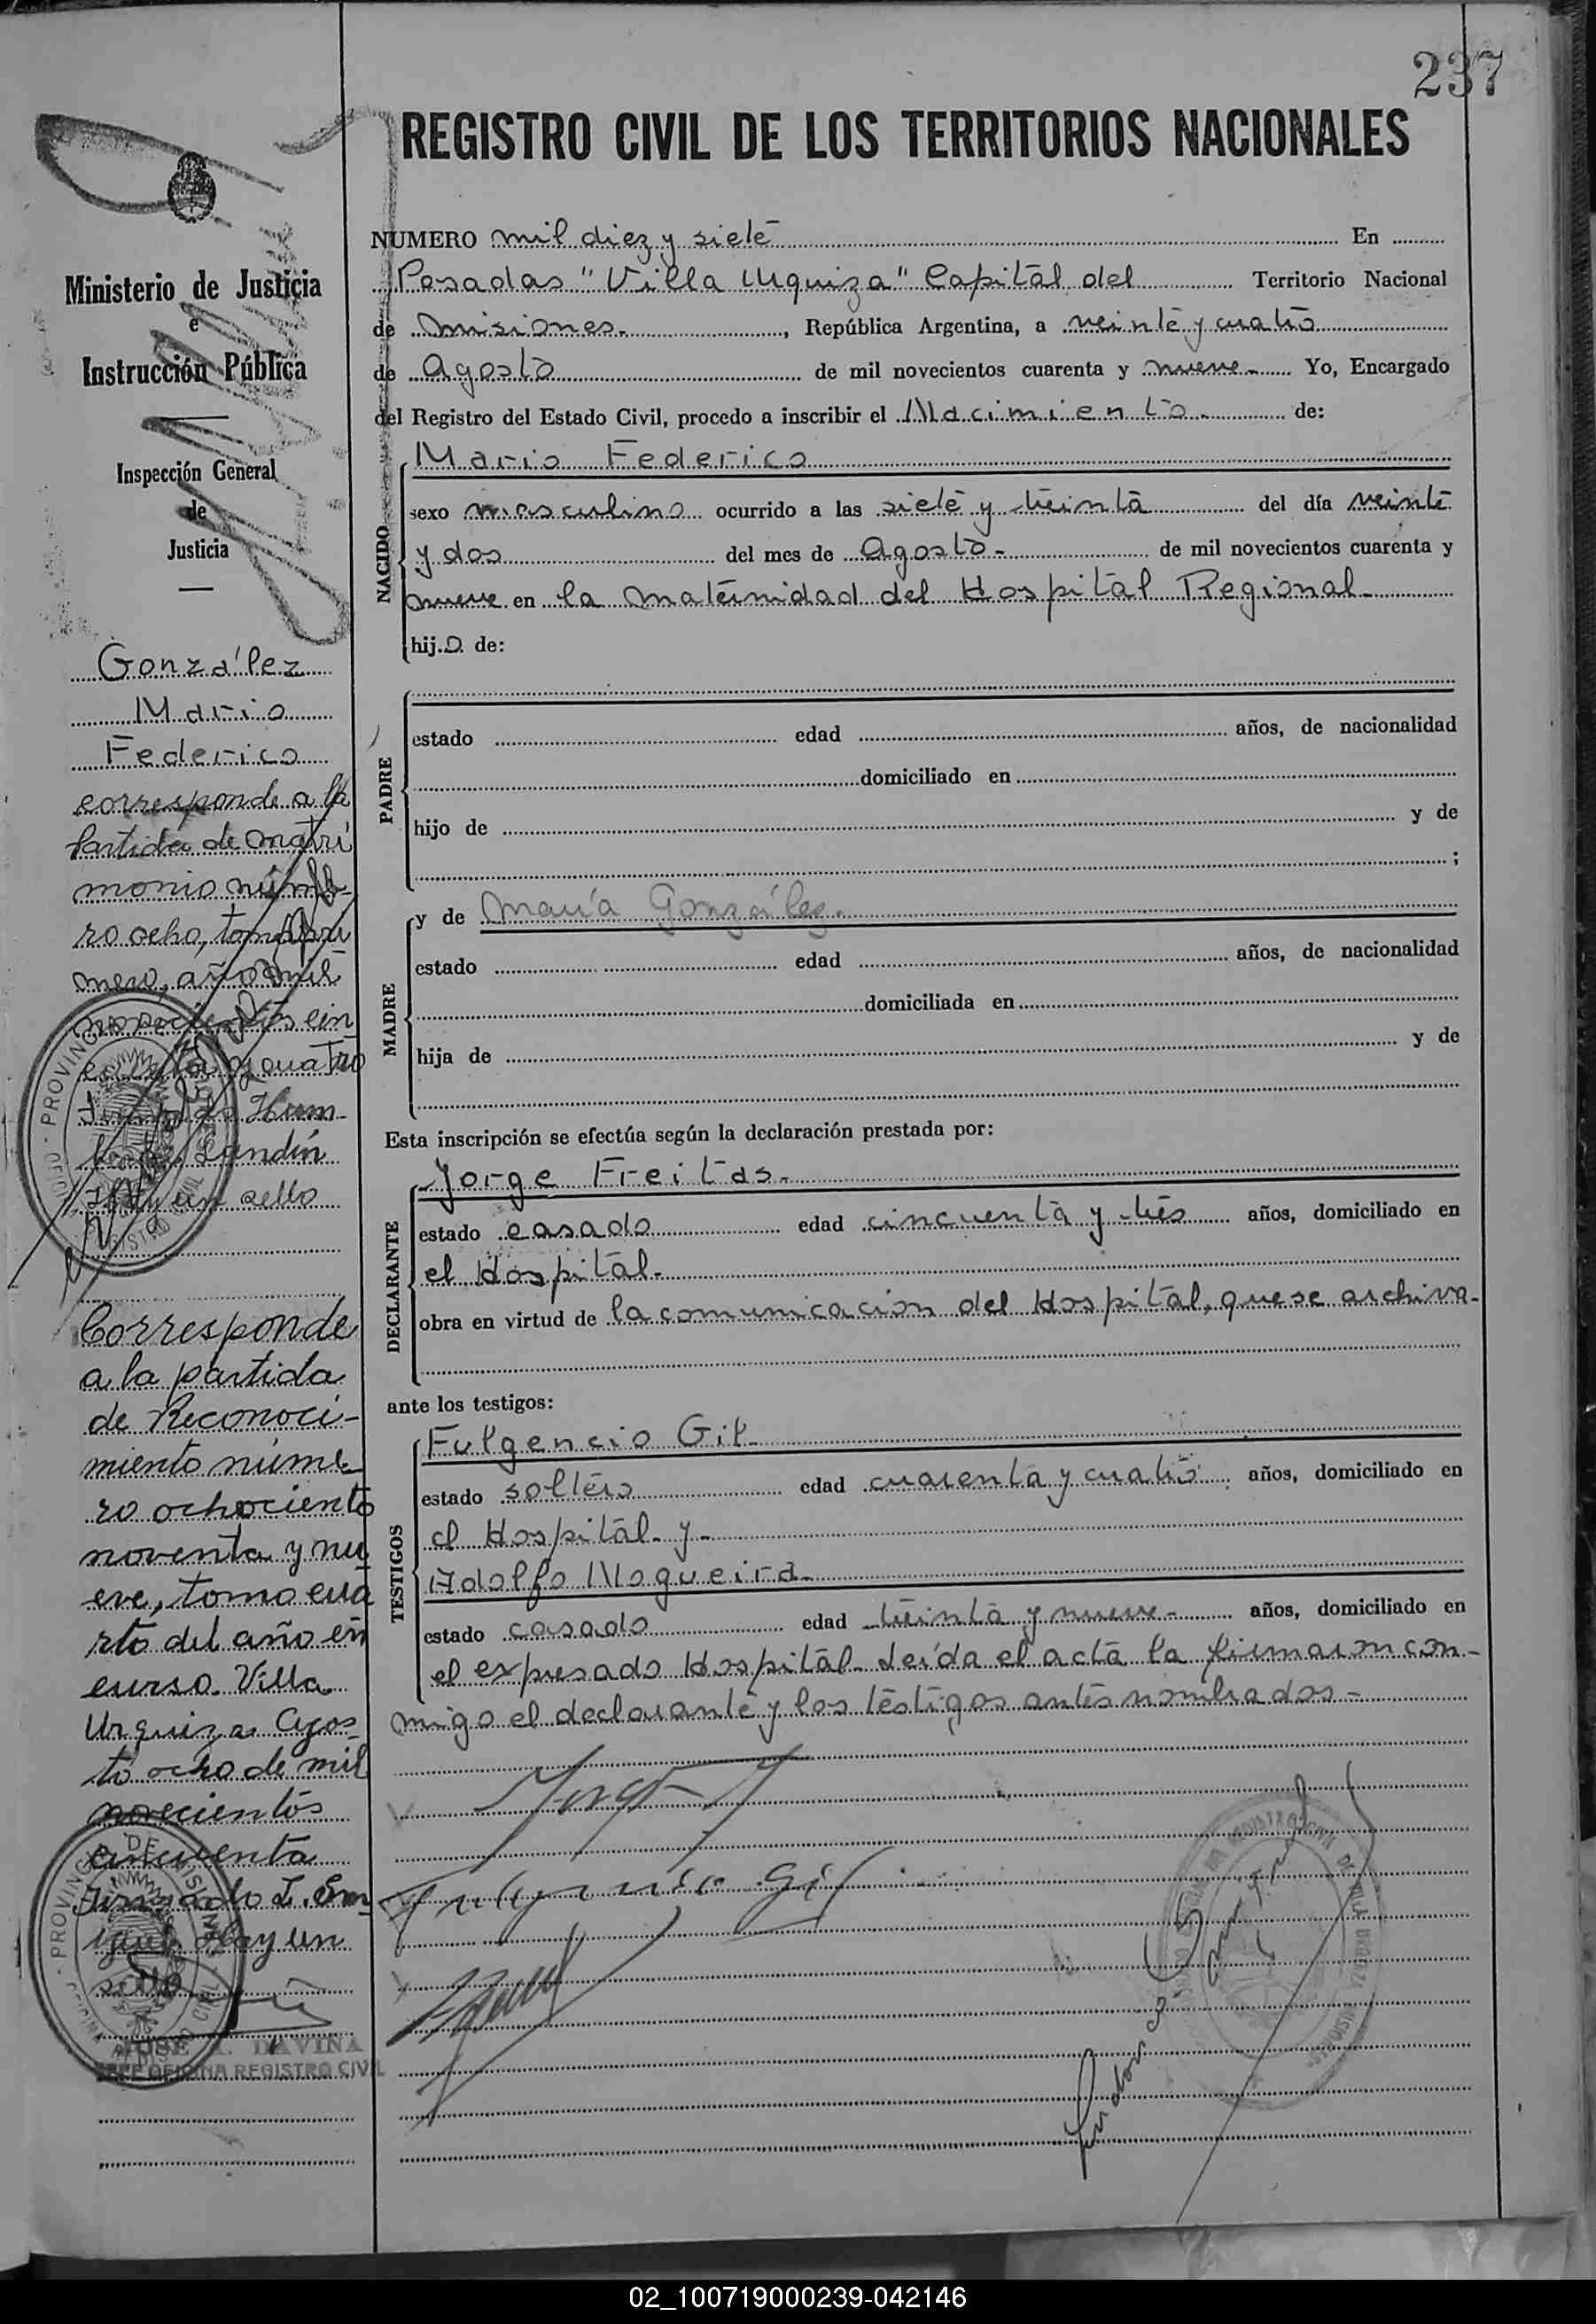 237
REGISTRO CIVIL DE LOS TERRITORIOS NACIONALES
Ministerio de Justicia
e
Instrucción Pública
Inspección General
de
Justicia
González
Mario
Federico
corresponde a la
partida de matri
monio núme-
ro ocho, tomo pri
mero, año mil
novecientos cin
cuenta y cuatro
Firmado Hum-
berto Landín
Hay un sello
Corresponde
a la partida
de Reconoci-
miento núme
ro ochociento
noventa y nu
eve, tomo cua
rto del año en
curso. Villa
Urquiza Agos-
to ocho de mil
novecientos
cincuenta
Firmado L.
Hay un
sello
JOSE A. DAVIÑA
JEFE OFICINA REGISTRO CIVIL
NUMERO mil diez y siete En
Posadas "Villa Urquiza" Capital del Territorio Nacional
de Misiones.- , República Argentina, a veinte y cuatro
de Agosto de mil novecientos cuarenta y nueve.- Yo, Encargado
del Registro del Estado Civil, procedo a inscribir el Nacimiento.- de:
NACIDO
Mario Federico
sexo masculino ocurrido a las siete y treinta del día veinte
y dos del mes de Agosto.- de mil novecientos cuarenta y
nueve en la maternidad del Hospital Regional.-
hij.o. de:
PADRE
estado edad años, de nacionalidad
domiciliado en
hijo de y de
;
MADRE
y de María González.
estado edad años, de nacionalidad
domiciliada en
hija de y de
Esta inscripción se efectúa según la declaración prestada por:
DECLARANTE
Jorge Freitas.-
estado casado edad cincuenta y tres años, domiciliado en
el Hospital.-
obra en virtud de la comunicación del Hospital, que se archiva.-
ante los testigos:
TESTIGOS
Fulgencio Gil.
estado soltero edad cuarenta y cuatro años, domiciliado en
el Hospital y-
Adolfo Nogueira.-
estado casado edad treinta y nueve.- años, domiciliado en
el expresado Hospital. Leída el acta la firmaron con-
migo el declarante y los testigos antes nombrados.-
Fulgencio Gil
02_100719000239-042146